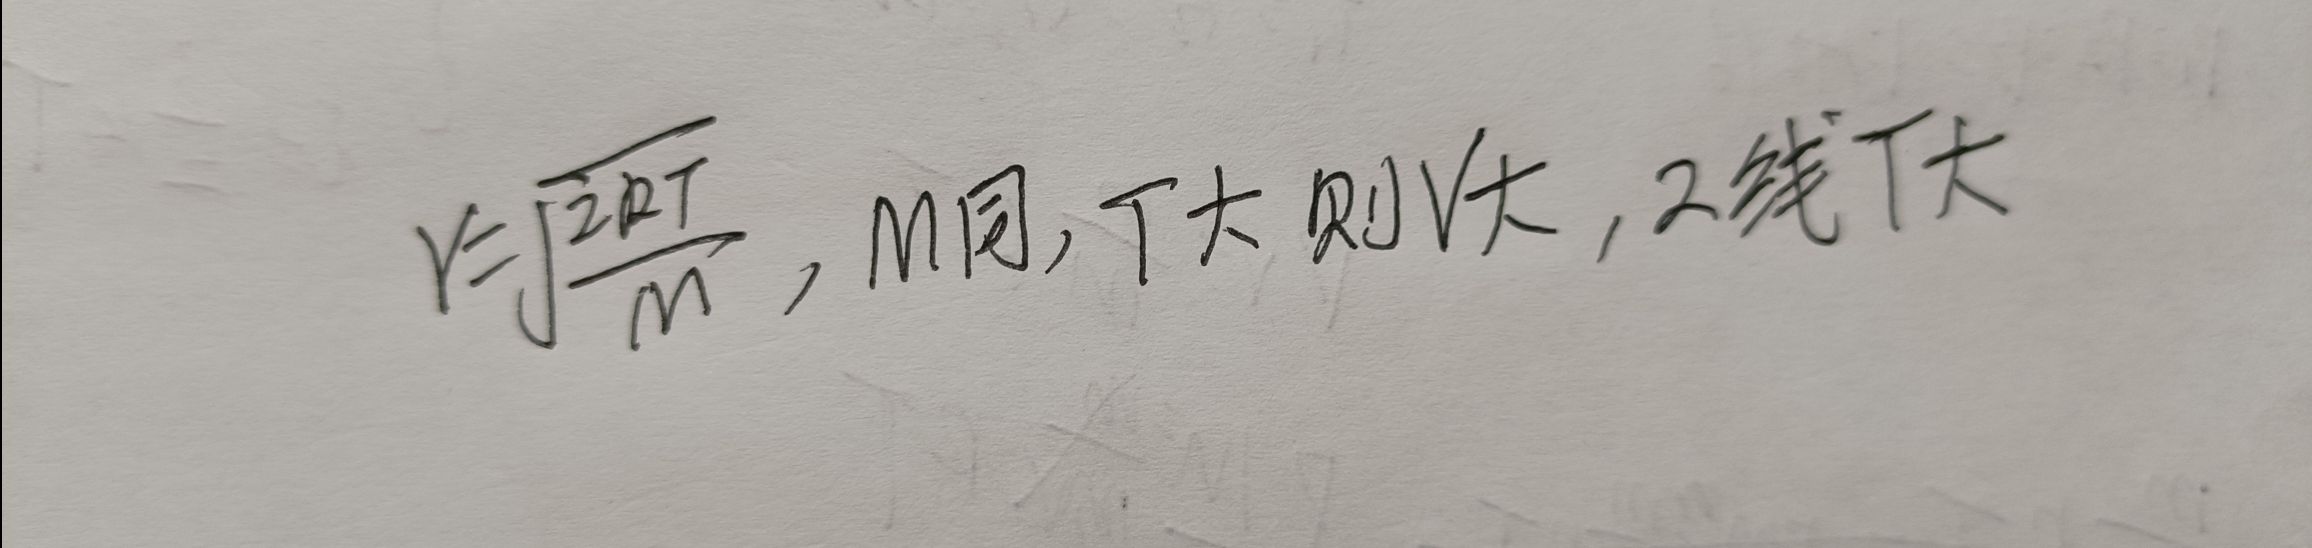 V=√(2RT/M), M同, T大则V大, 2线T大